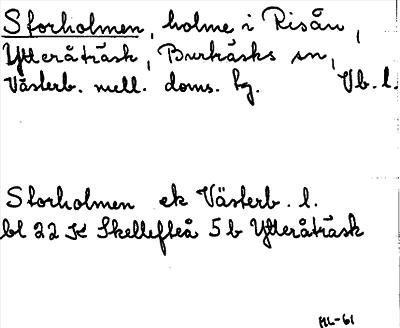 Storholmen, holme i Risån,
Ytteråträsk, Burträsks sn,
Västerb. mell. doms. tg. Vb. l.
Storholmen ek Västerb. l.
bl 22 K Skellefteå 5 b Ytteråträsk
ML-61